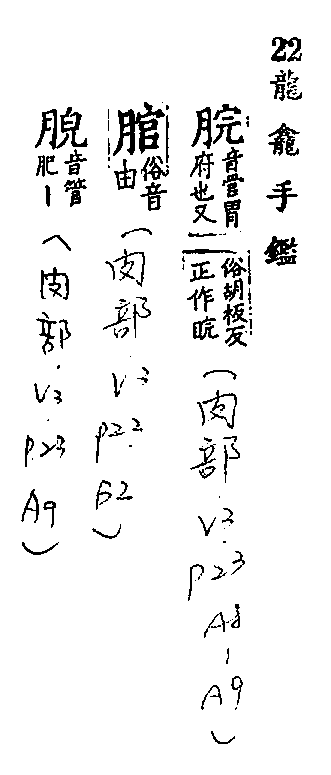 22龍龕手鑑
脘音管胃府也又俗胡板反正作睆
(肉部.V3.P23 A8、A9)
䐽俗音由
(肉部.V3 P22.B2)
脕音管肥丨
(肉部.V3.P23 A9)